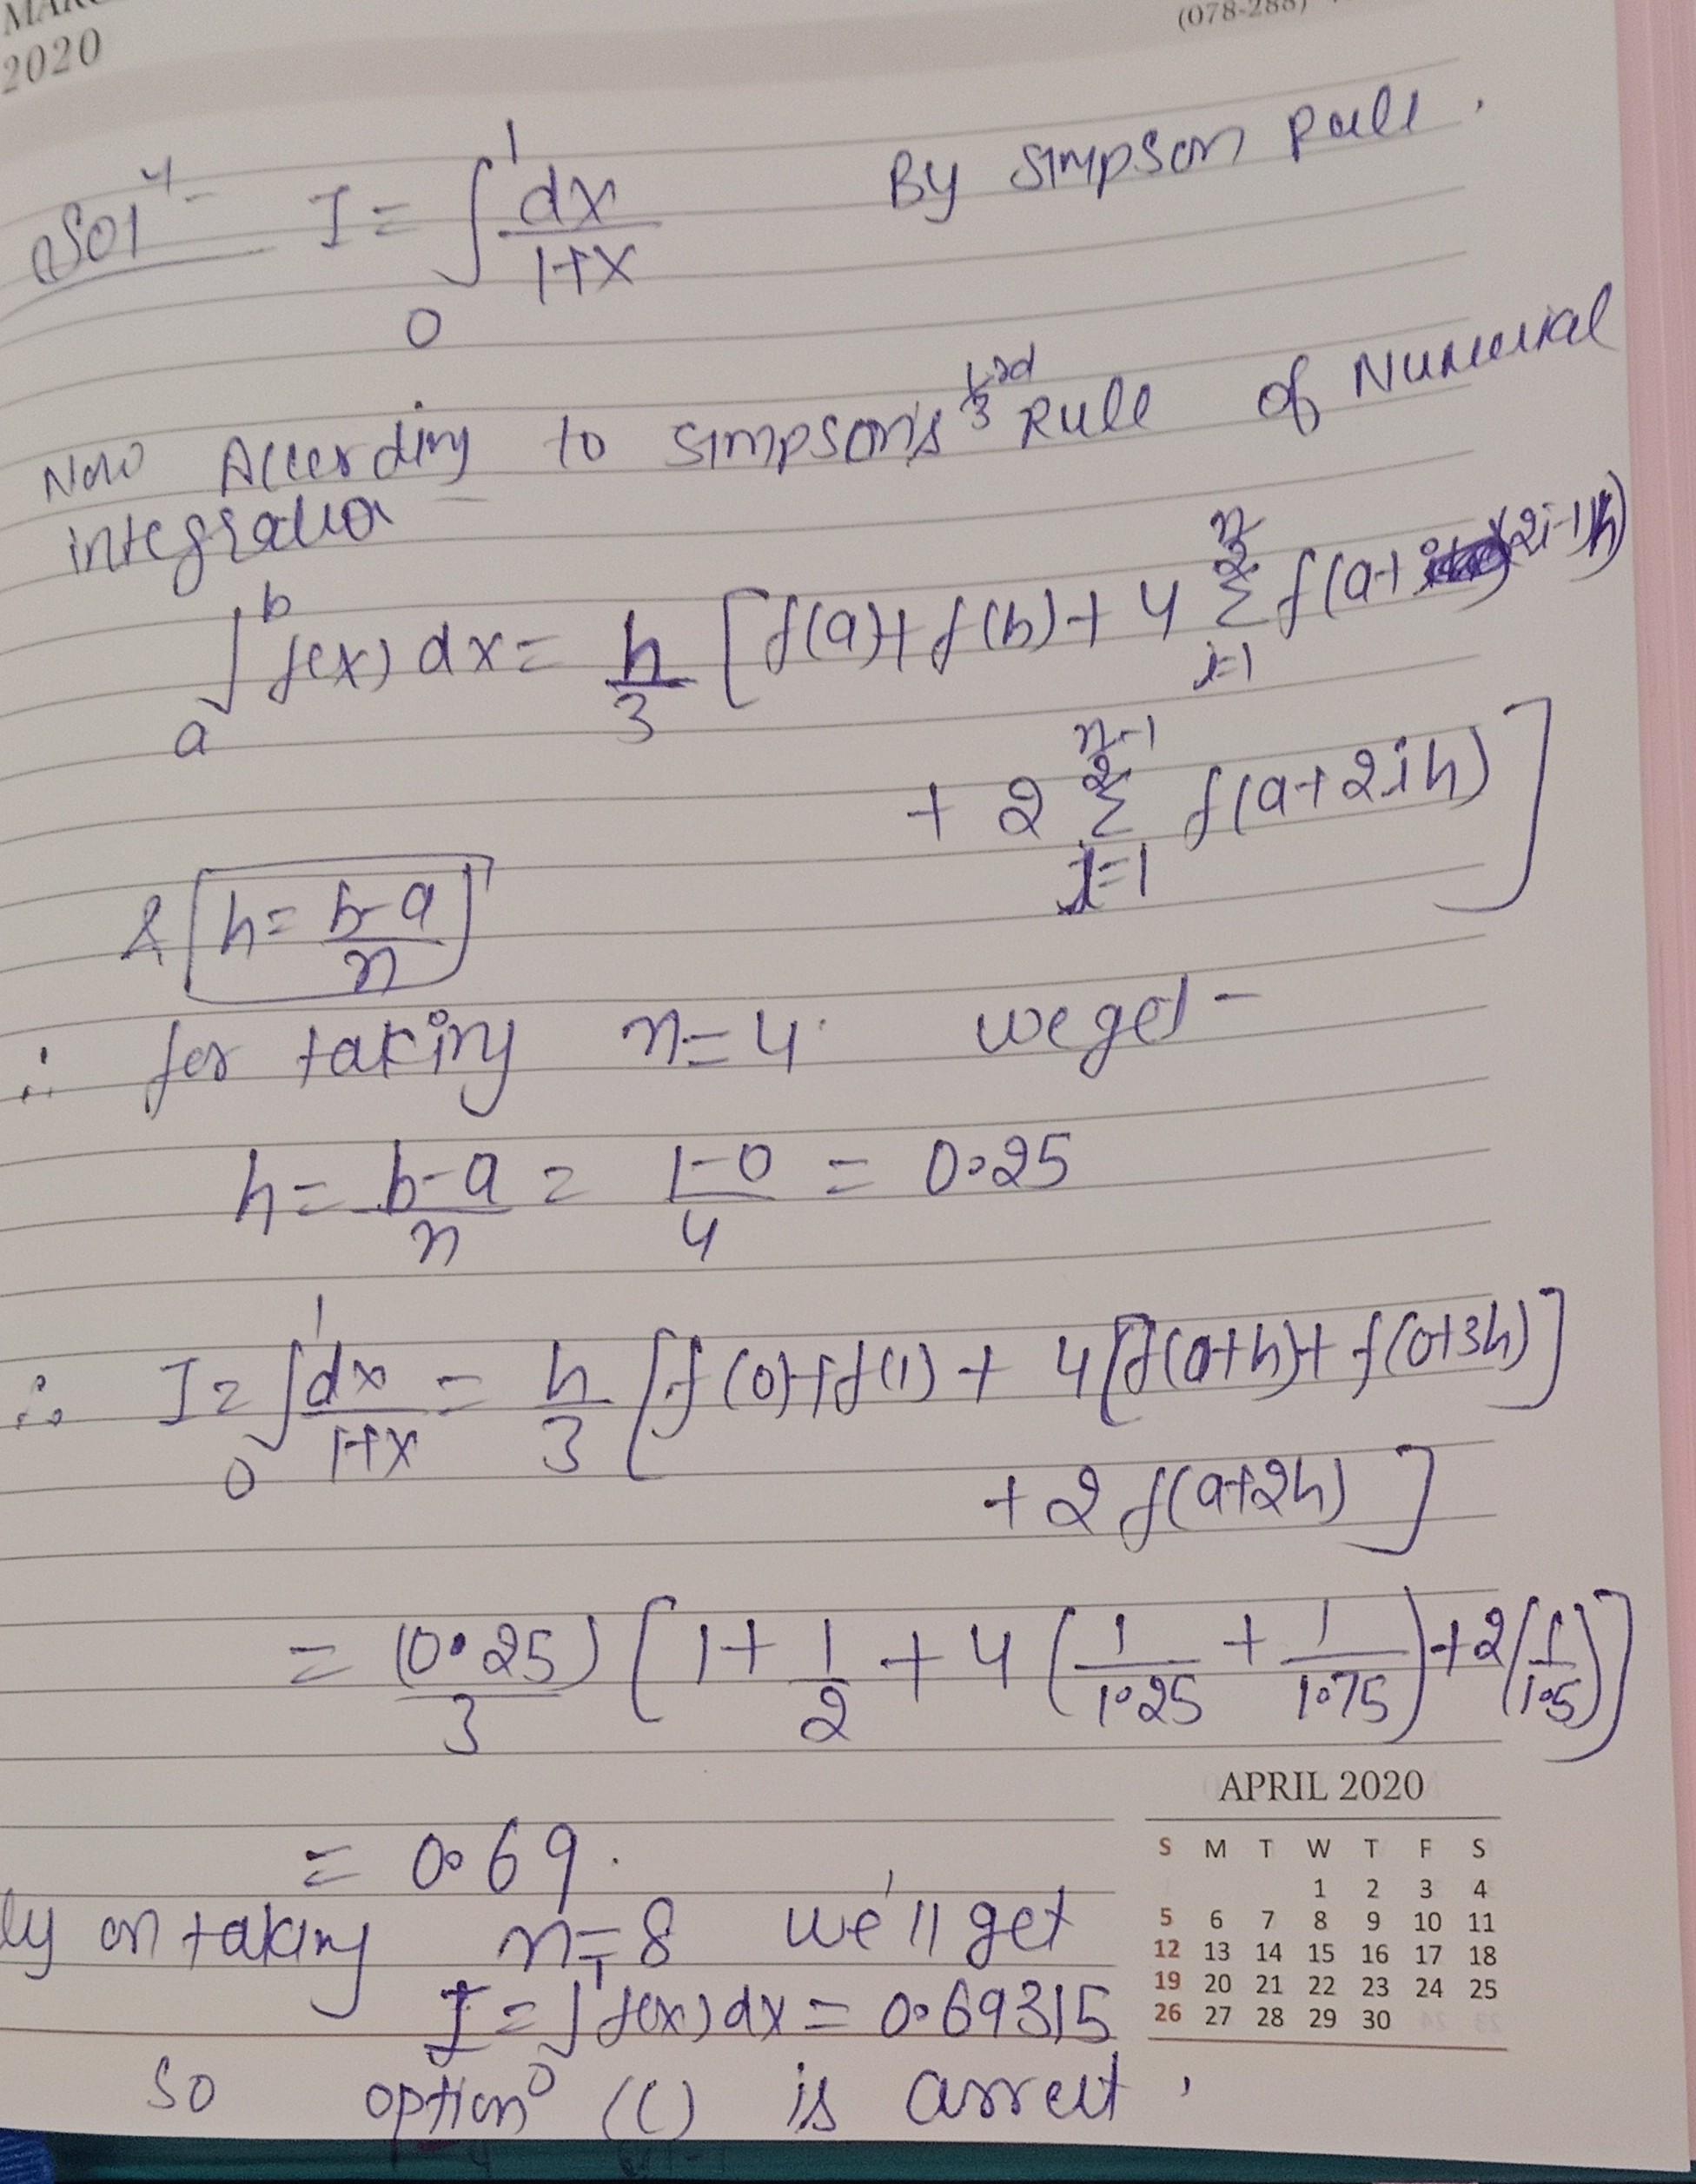 2020
(078-288)
Solⁿ- I = ∫₀¹ dx/(1+x) By Simpson Rule.
Now According to Simpson's 1/3 rd Rule of Numerical
integration -
∫ₐᵇ f(x) dx = h/3 [f(a)+f(b)+ 4 Σ_{i=1}^{n/2} f(a+(2i-1)h)
+ 2 Σ_{i=1}^{n/2-1} f(a+2ih)]
& [h = b-a/n]
∴ for taking n=4. we get -
h = b-a/n = 1-0/4 = 0.25
∴ I = ∫₀¹ dx/1+x = h/3 [f(0)+f(1) + 4[f(a+h)+f(a+3h)]
+ 2 f(a+2h)]
= (0.25)/3 [1+ 1/2 + 4(1/1.25 + 1/1.75)+2(1/1.5)]
= 0.69.
ly on taking n=8 we'll get
I = ∫₀¹ f(x) dx = 0.69315
So option (C) is correct.
APRIL 2020
S M T W T F S
1 2 3 4
5 6 7 8 9 10 11
12 13 14 15 16 17 18
19 20 21 22 23 24 25
26 27 28 29 30